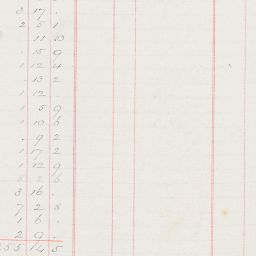 3 17 .
2 5 1
. 11 10
. 15 9
1 12 4
. 13 2
1 12 .
1 5 9
1 10 6
. 9 2
1 17 2
1 12 9
8 2 6
3 16 .
7 2 8
1 6 .
2 9 .
55 14 5